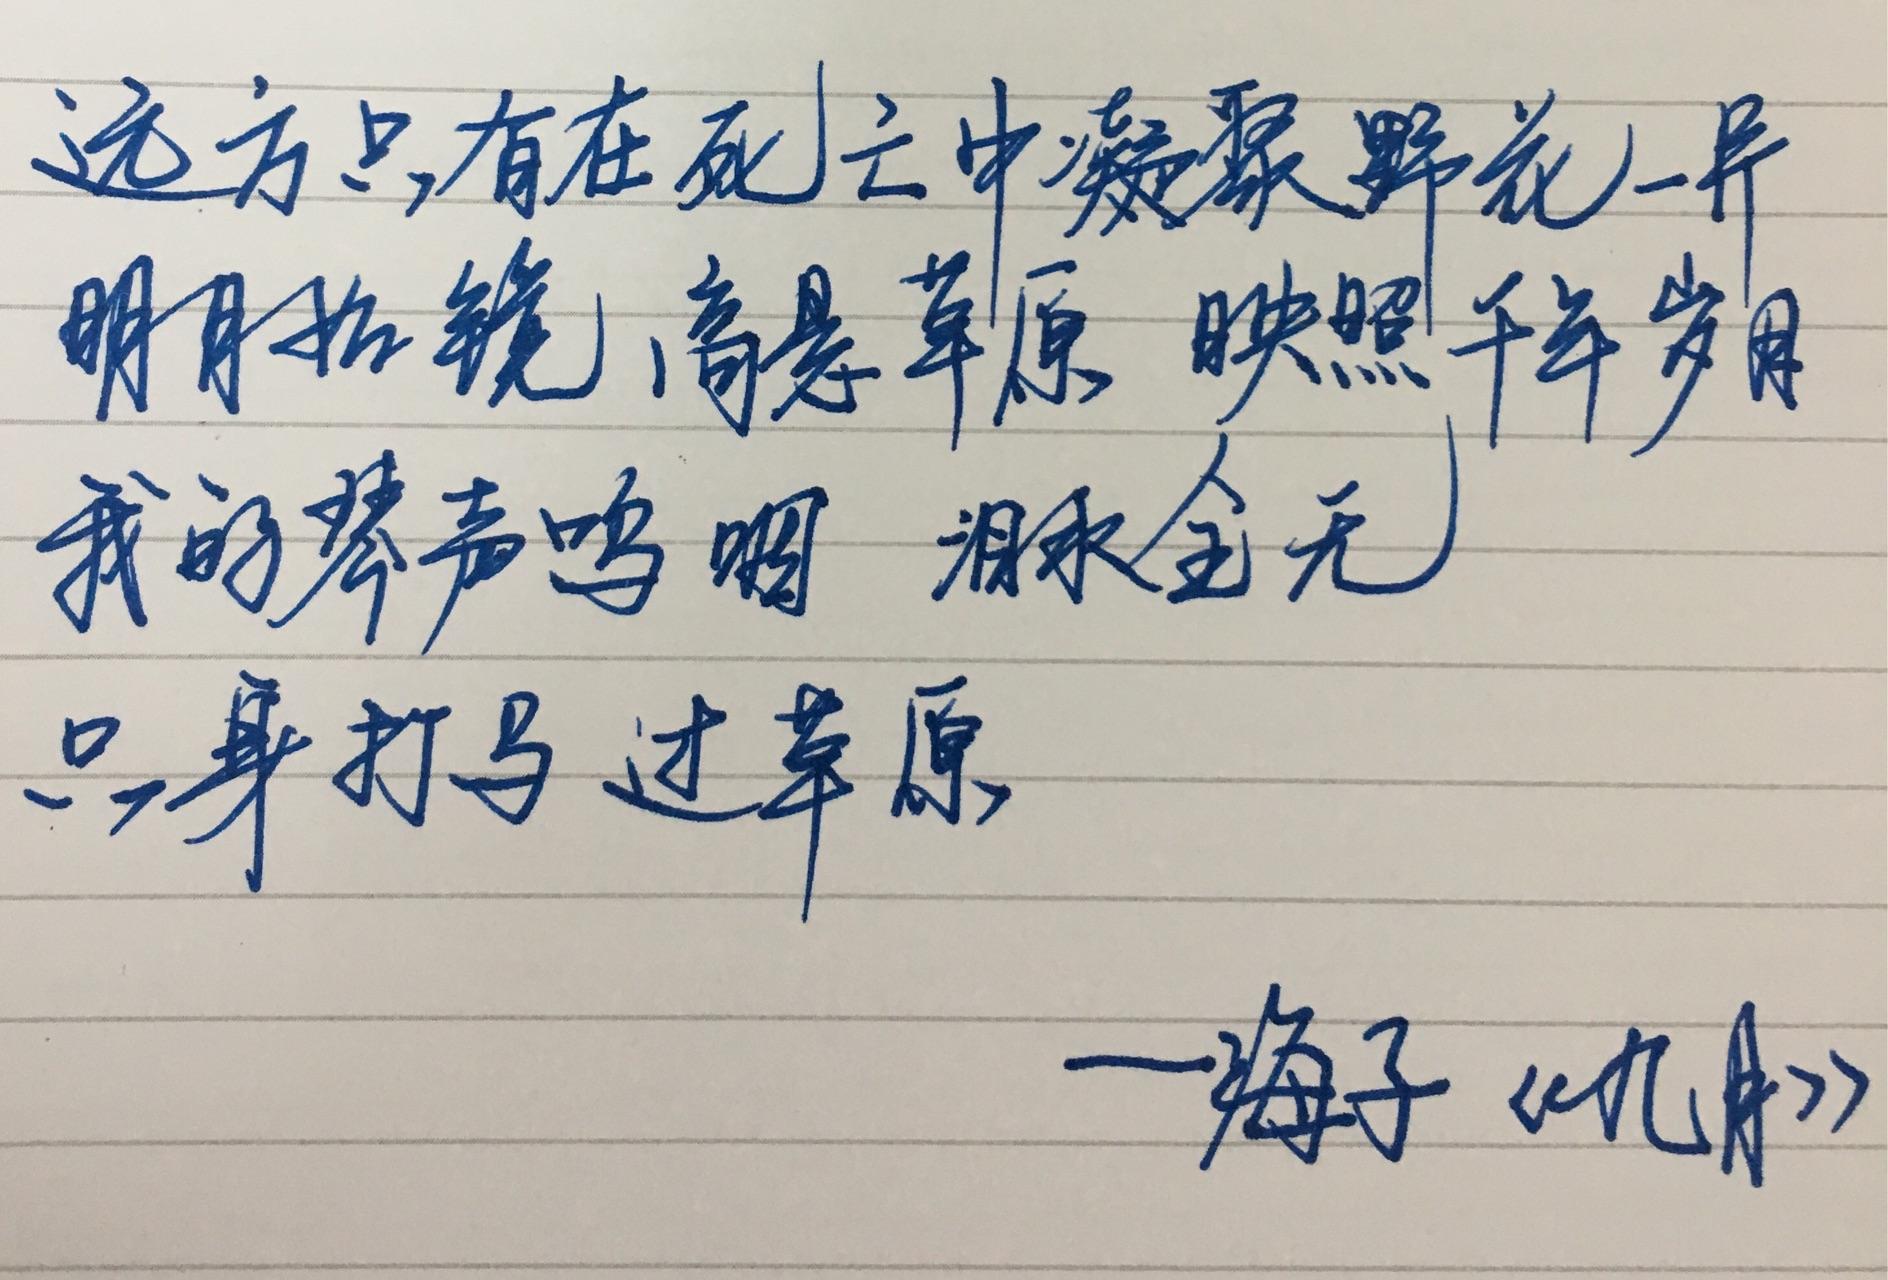 远方只有在死亡中凝聚野花一片
明月如镜 高悬草原 映照千年岁月
我的琴声呜咽 泪水全无
只身打马过草原
—海子《九月》